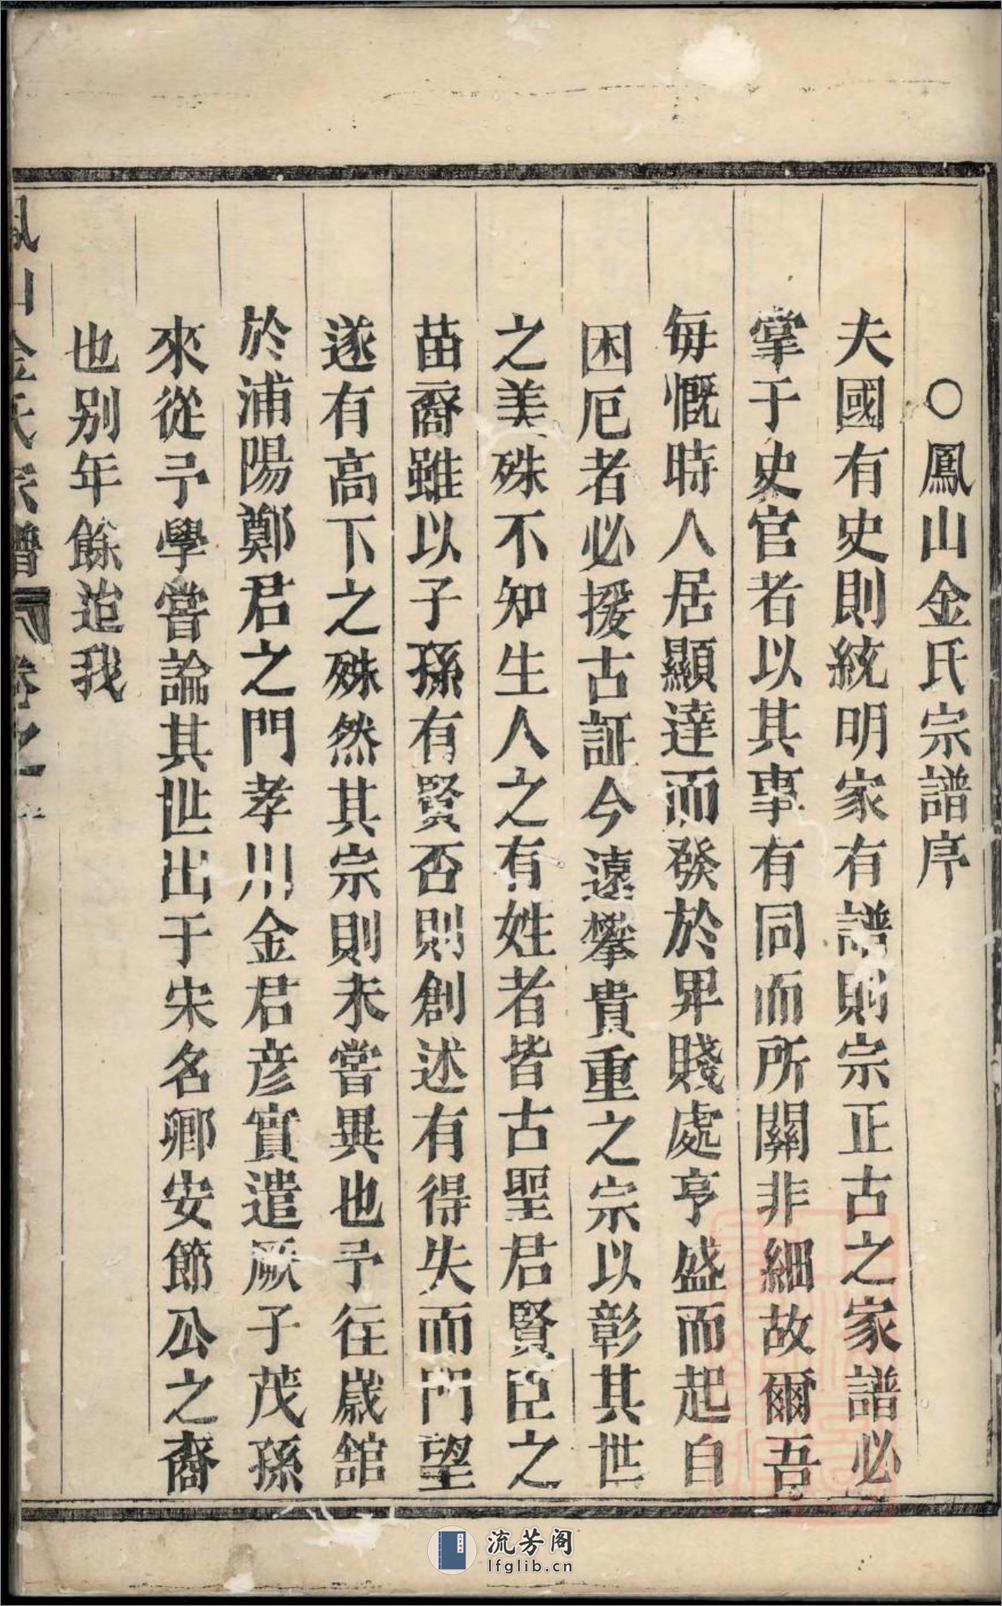 ○鳳山金氏宗譜序
夫國有史則統明家有譜則宗正古之家譜必
掌于史官者以其事有同而所關非細故爾吾
每慨時人居顯達而發於卑賤處亨盛而起自
困厄者必援古証今遠攀貴重之宗以彰其世
之美殊不知生人之有姓者皆古聖君賢臣之
苗裔雖以子孫有賢否則創述有得失而門望
遂有高下之殊然其宗則未嘗異也予往歲舘
於浦陽鄭君之門孝川金君彦實遣厥子茂孫
來從予學嘗論其世出于宋名卿安節公之裔
也别年餘迨我
鳳山金氏宗譜 卷之
流芳阁
lfglib.cn